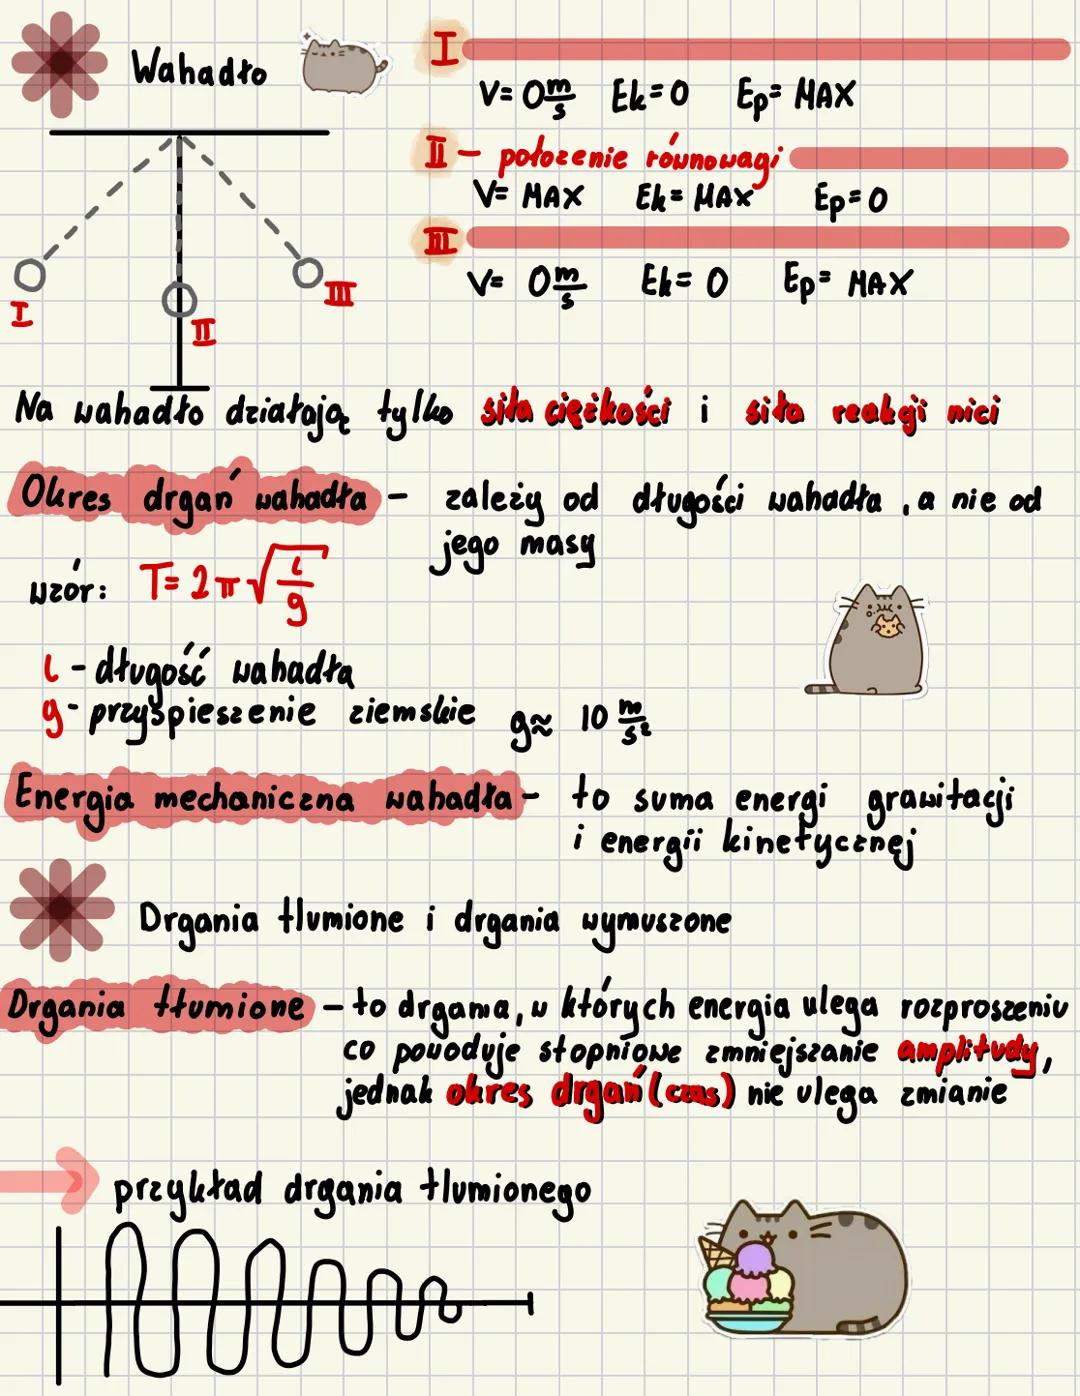 Wahadło
I
V= 0 m/s Ek=0 Ep= MAX
II - położenie równowagi
V= MAX Ek= MAX Ep=0
III
V= 0 m/s Ek= 0 Ep= MAX
I
II
III
Na wahadło działają tylko siła ciężkości i siła reakcji nici
Okres drgań wahadła - zależy od długości wahadła, a nie od
jego masy
wzór: T= 2π√(l/g)
l - długość wahadła
g - przyśpieszenie ziemskie g≈ 10 m/s²
Energia mechaniczna wahadła - to suma energi grawitacji
i energii kinetycznej
Drgania tlumione i drgania wymuszone
Drgania tłumione - to drgania, w których energia ulega rozproszeniu
co powoduje stopniowe zmniejszanie amplitudy,
jednak okres drgań (czas) nie ulega zmianie
przykład drgania tlumionego